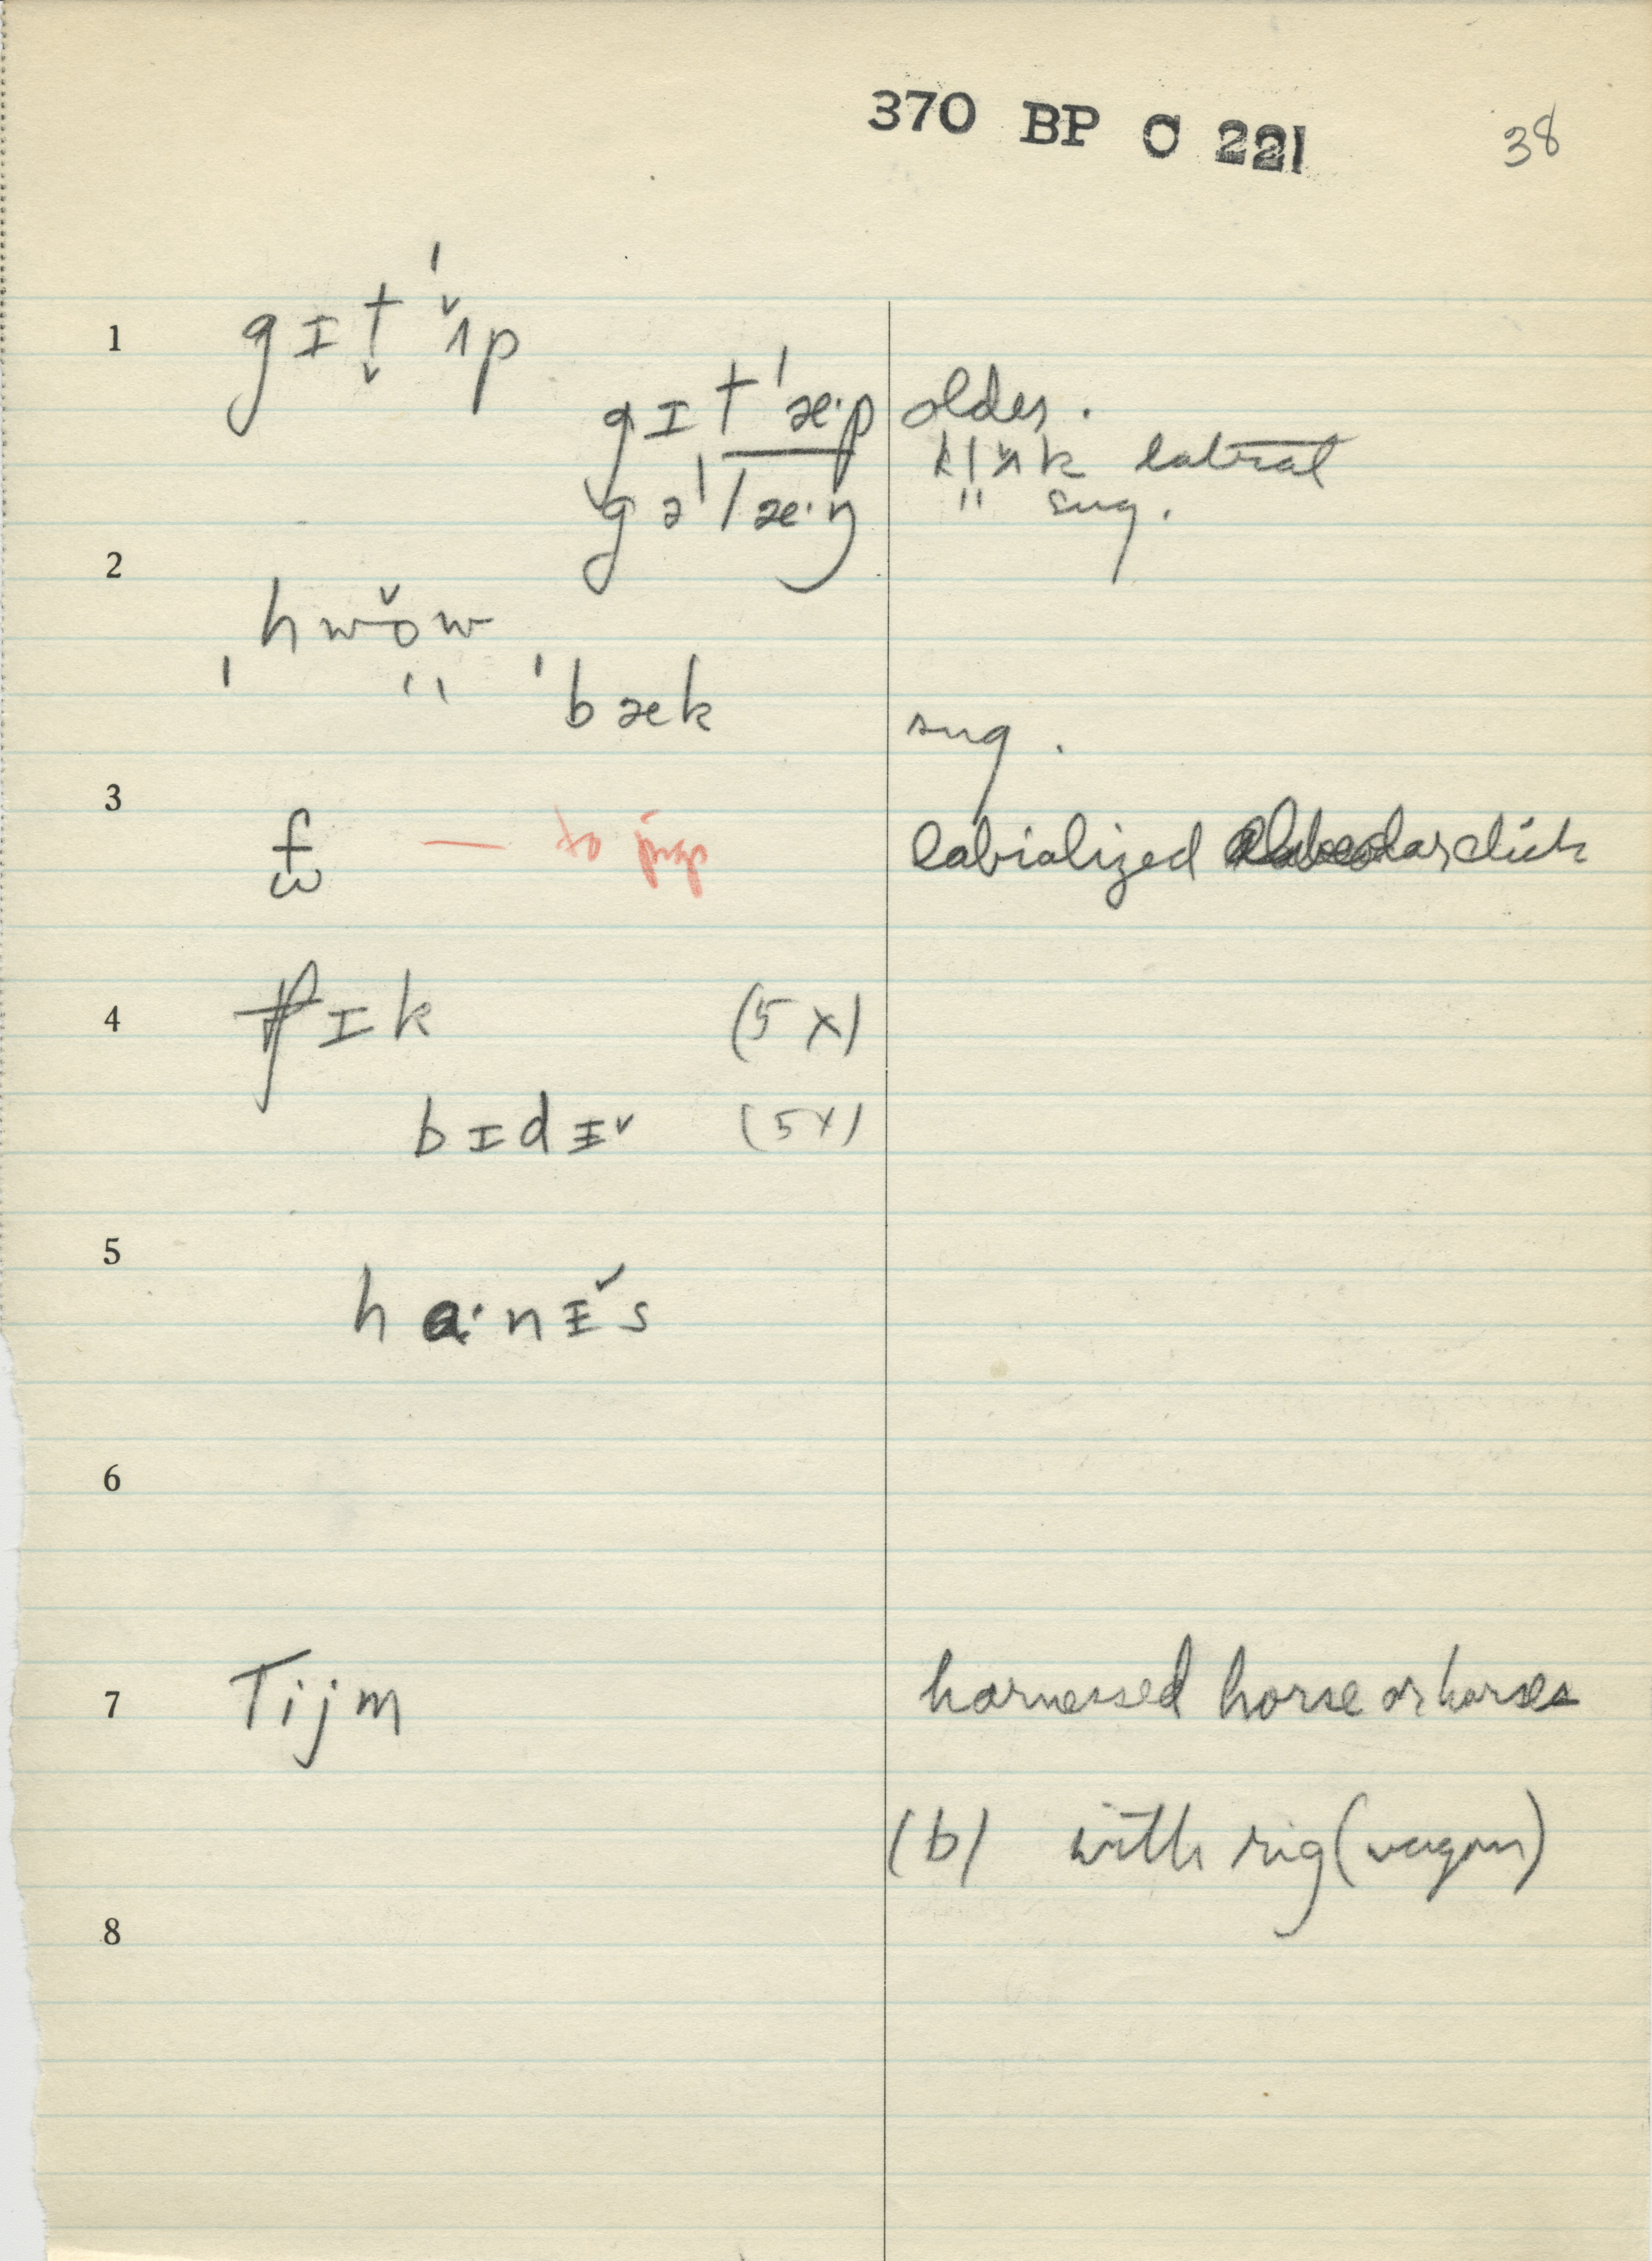 370 BP C 221
38
1 gɪt̬ 'ʌ̌p
gɪt'æ·p older.
lateral
gə'læ·ŋ " sug.
2
hwǒw
' " 'bæk sug.
3
f — to jigs labialized alveolar click
4 ɪk (5x)
bɪdɪ˅ (5x)
5
ha·nɪ̌s
6
7 Tijm harnessed horse or horses
(b) with rig (wagon)
8